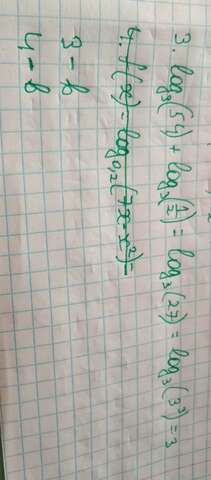 3. log₃(54) + log₃(1/2) = log₃(27) = log₃(3³) = 3
4. f(x) = log₀,₂(7x - x²) =
3 - b
4 - b